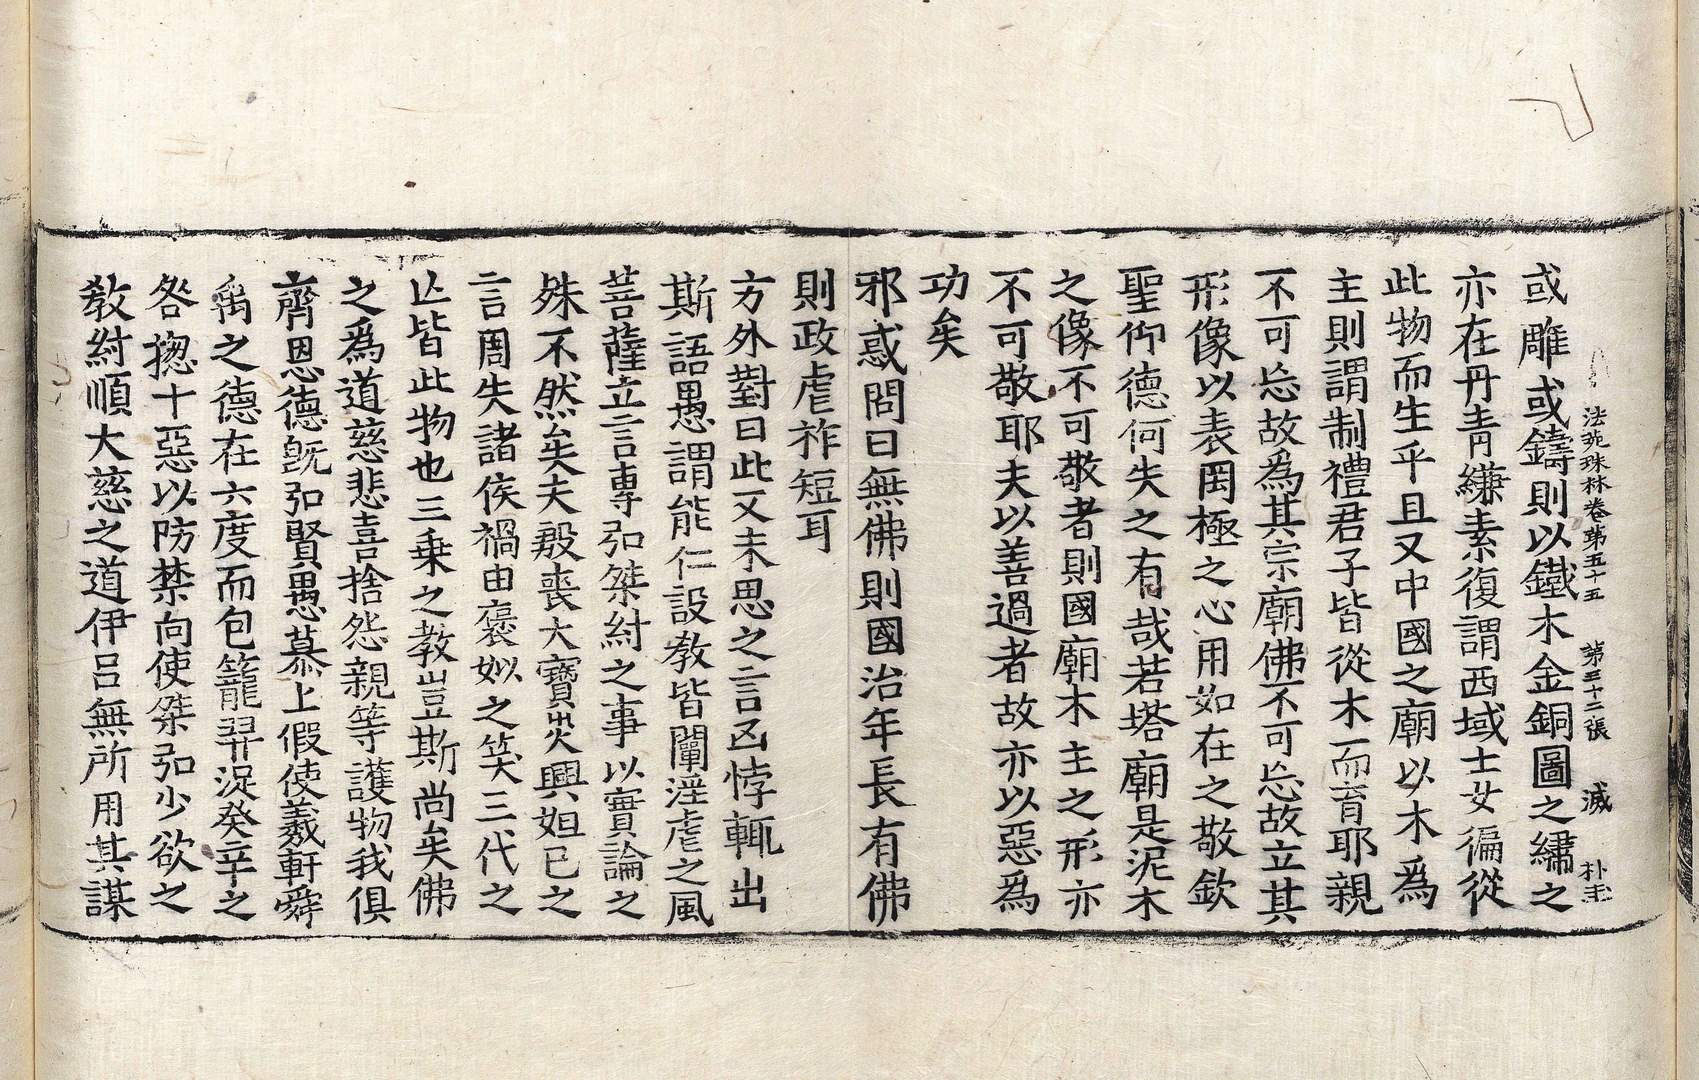 法苑珠林卷第五十五 第三十二張 滅 朴圭
或雕或鑄則以鐵木金銅圖之繡之
亦在丹青縑素復謂西域士女徧從
此物而生乎且又中國之廟以木爲
主則謂制禮君子皆從木而育耶親
不可忘故爲其宗廟佛不可忘故立其
形像以表罔極之心用如在之敬欽
聖仰德何失之有哉若塔廟是泥木
之像不可敬者則國廟木主之形亦
不可敬耶夫以善過者故亦以惡爲
功矣
邪惑問曰無佛則國治年長有佛
則政虐祚短耳
方外對曰此又未思之言凶悖輒出
斯語愚謂能仁設教皆闡淫虐之風
菩薩立言專弘桀紂之事以實論之
殊不然矣夫殷喪大寶災興妲已之
言周失諸侯禍由襃姒之笑三代之
亾皆此物也三乗之教豈斯尚矣佛
之爲道慈悲喜捨怨親等護物我俱
齊恩德旣弘賢愚慕上假使羲軒舜
禹之德在六度而包籠羿浞癸辛之
咎揔十惡以防禁向使桀弘少欲之
教紂順大慈之道伊呂無所用其謀